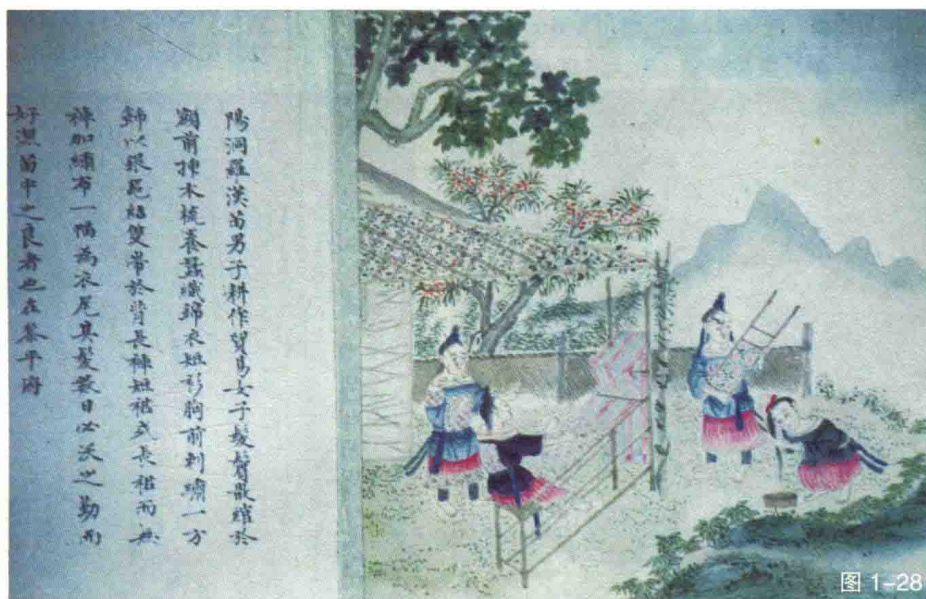 陽洞羅漢苗男子耕作貿易女子髮鬢散綰於
額前揷木梳養蠶織錦衣短衫胸前刺繡一方
錦以銀飾結雙帶於背長裙短褲或長褲而無
裙加繡布一幅為衣尾其髮數日必沃之勤而
好潔苗中之良者也在黎平府
图 1-28